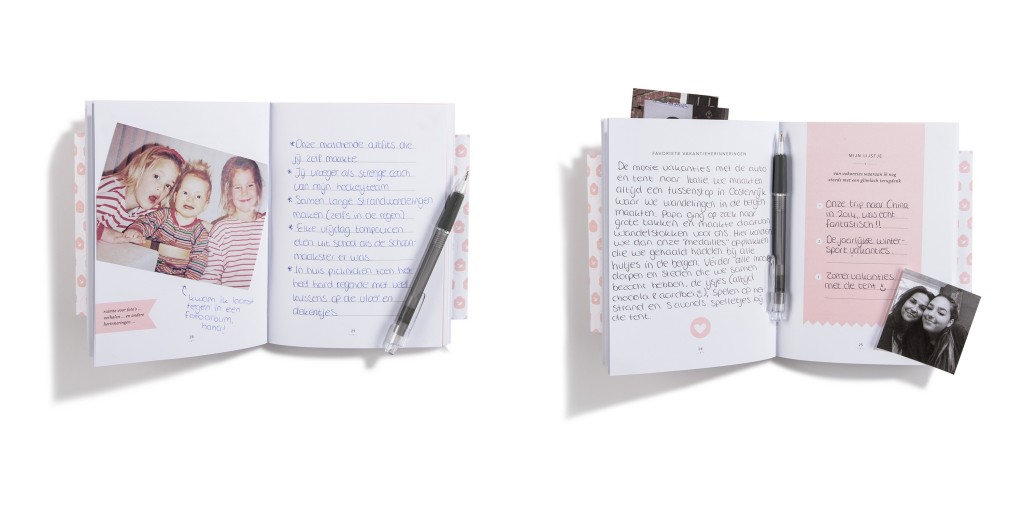 kwam ik laatst
tegen in een
fotoalbum,
haha!
ruimte voor foto's -
verhalen... en andere
herinneringen -
* Onze matchende outfits die
jij zelf maakte
* Jij vroeger als strenge coach
van mijn hockeyteam
* Samen lange strandwandelingen
maken (zelfs in de regen)
* Elke vrijdag tompoucen
eten uit school als de schoon
maakster er was
* In huis picknicken toen het
heel hard regende met veel
kussens op de vloer en
dekentjes
FAVORIETE VAKANTIEHERINNERINGEN
De mooie vakanties met de auto
en tent naar Italië. We maakten
altijd een tussenstop in Oostenrijk
waar we wandelingen in de bergen
maakten. Papa ging op zoek naar
grote takken en maakte daarvan
wandelstokken voor ons. Hier konden
we dan onze 'medailles' opplakken
die we gehaald hadden bij alle
hutjes in de bergen. Verder alle mooie
dorpen en steden die we samen
bezocht hebben, de ijsjes (altijd
chocola & aardbei), spelen op het
strand en 's avonds spelletjes bij
de tent.
MIJN LIJSTJE
van vakanties waaraan ik nog
steeds met een glimlach terugdenk
Onze trip naar China
in 2014, was echt
fantastisch!!
De jaarlijkse winter-
sport vakanties
Zomervakanties
met de tent